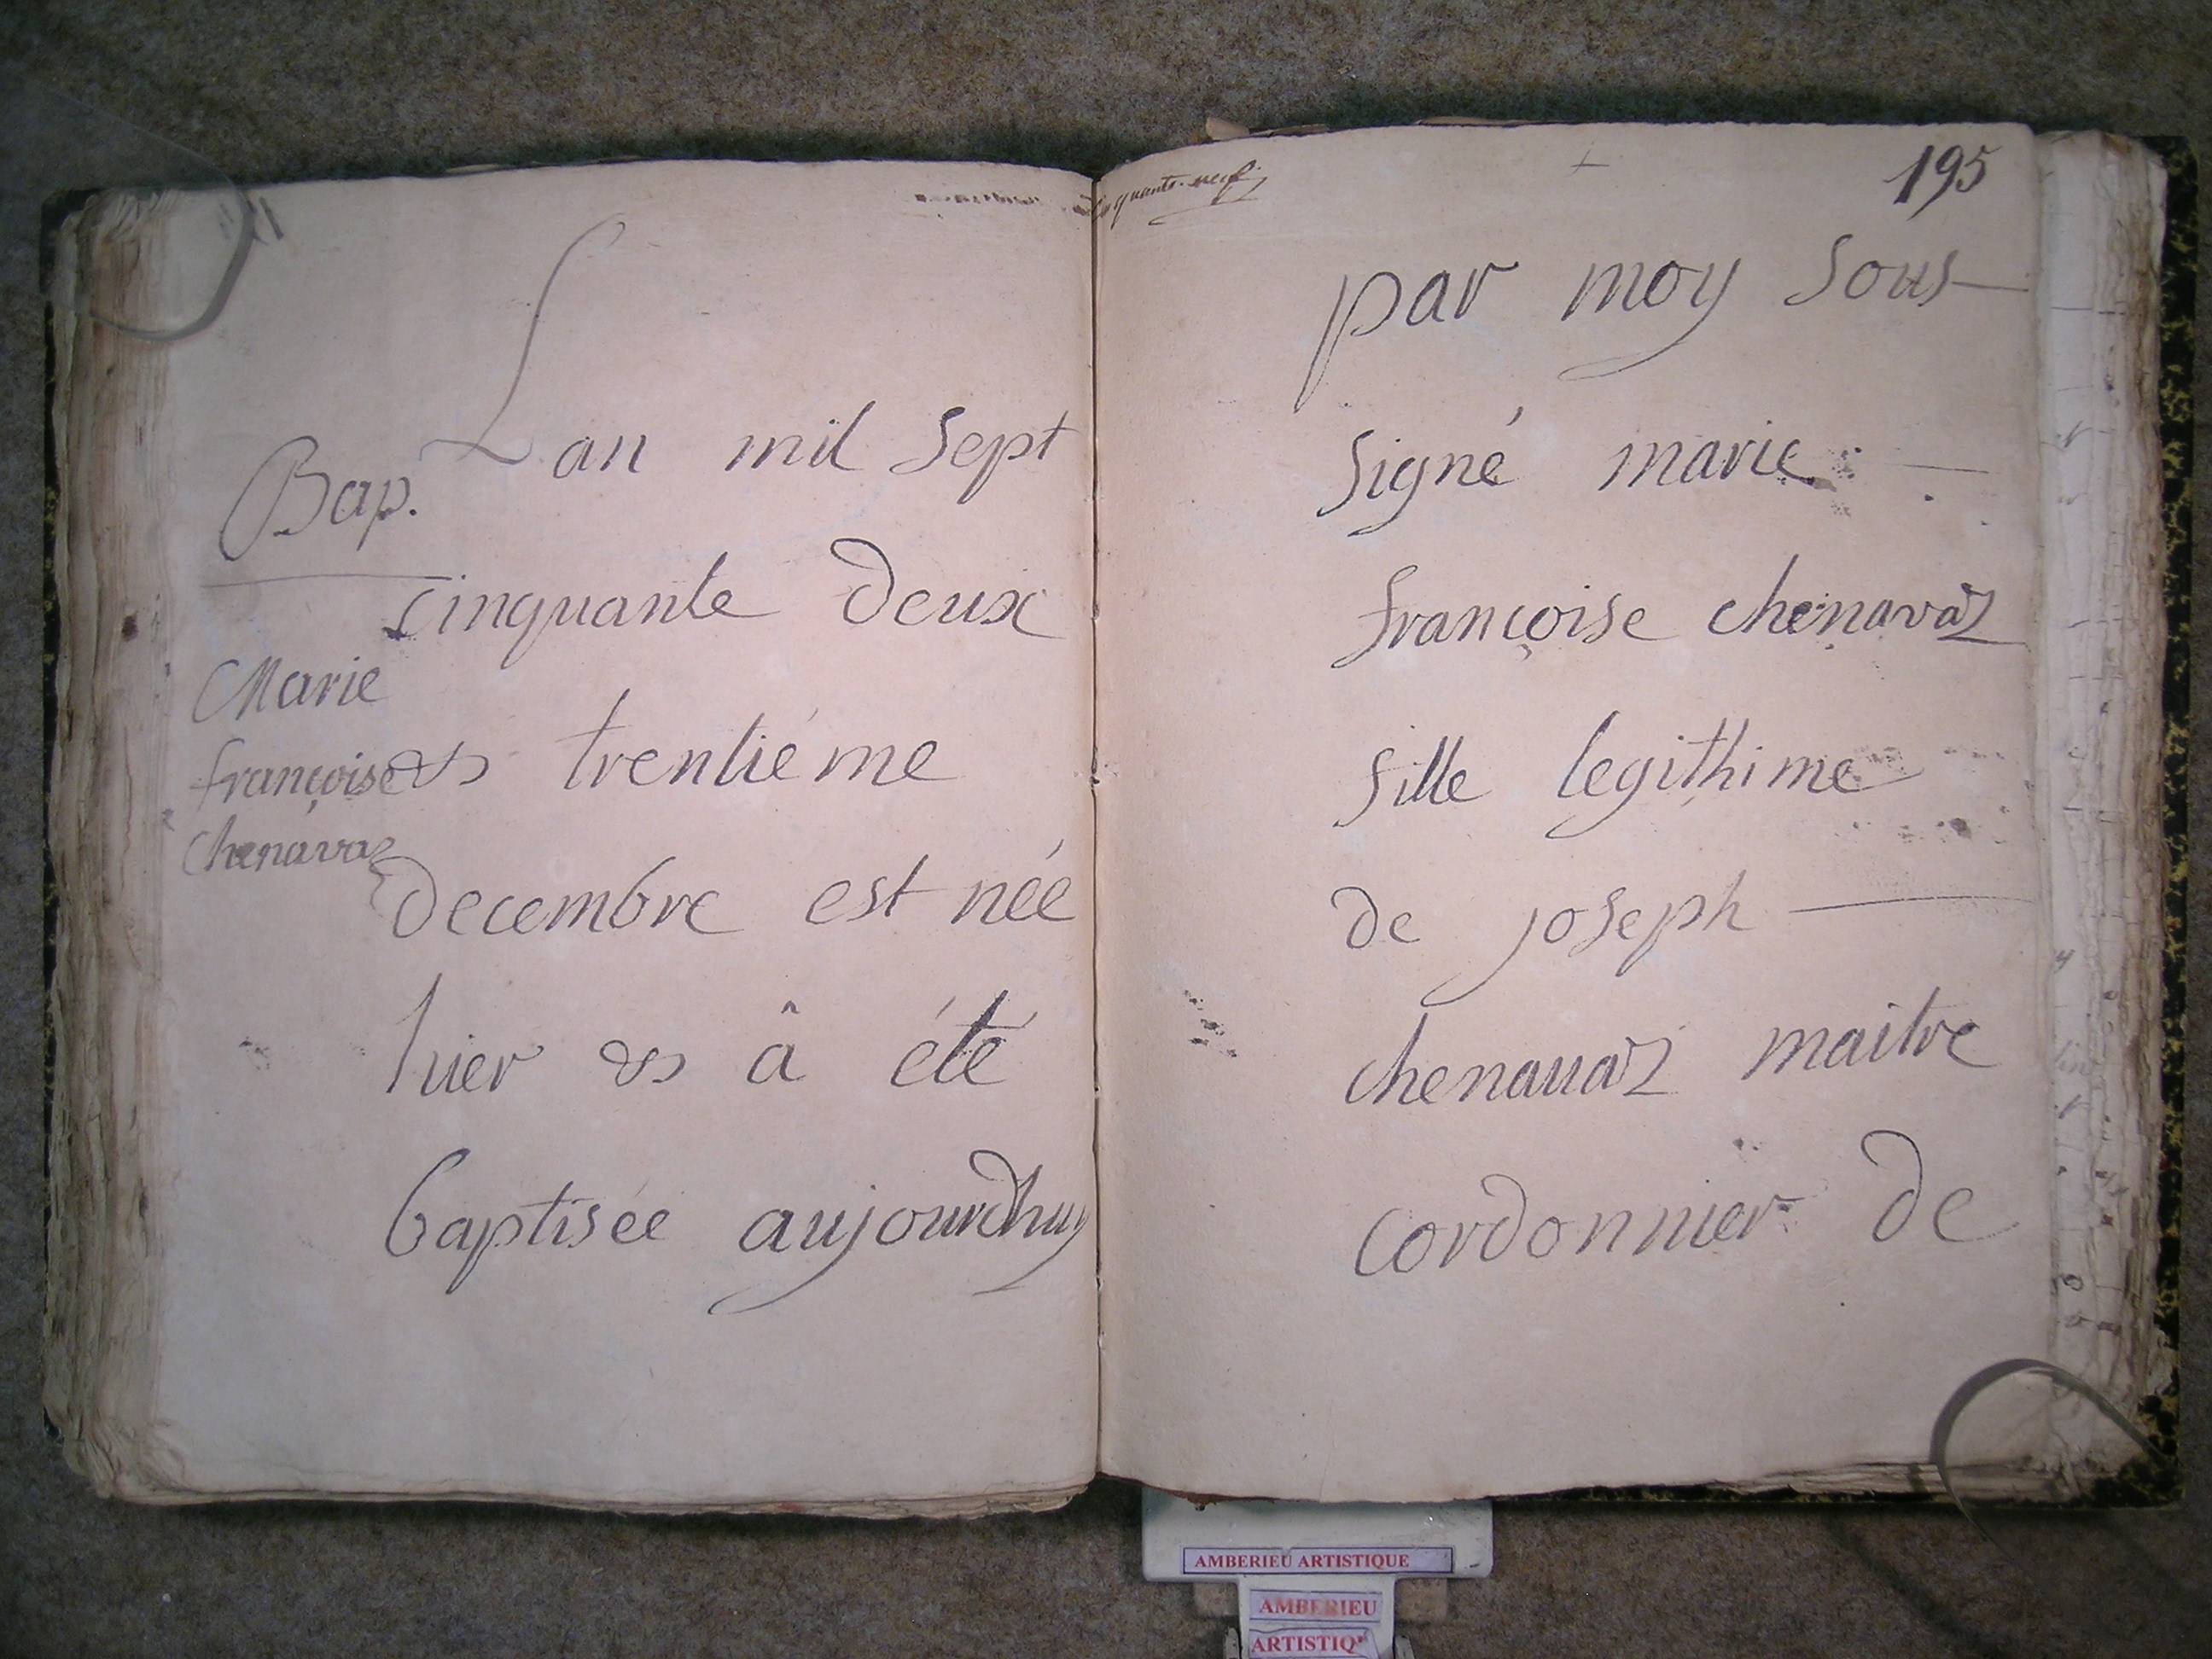 Bap.
Marie
françoise
chenavaz
Lan mil sept
cinquante deux
& trentiéme
decembre est née
hier & â été
baptisée aujourdhuy
quante-neuf
195
par moy sous
signé marie
françoise chenavaz
fille legithime
de joseph
chenauaz maitre
cordonnier de
AMBERIEU ARTISTIQUE
AMBERIEU
ARTISTIQ